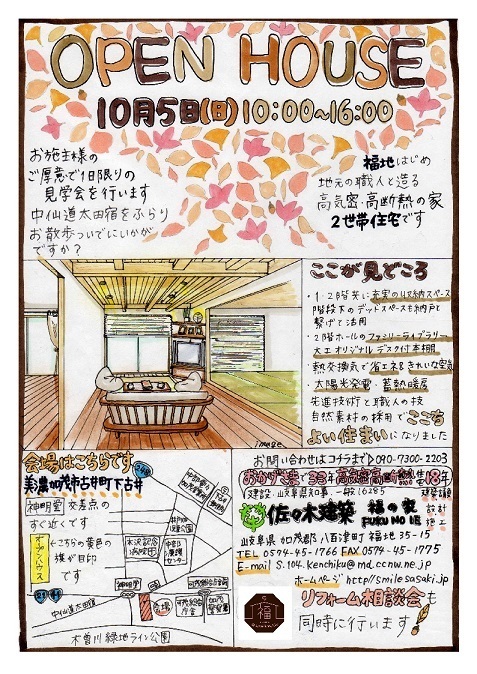 OPEN HOUSE
10月5日(日)10:00~16:00
お施主様の
ご厚意で1日限りの
見学会を行います
中仙道太田宿をふらり
お散歩ついでにいかが
ですか?
福地はじめ
地元の職人と造る
高気密・高断熱の家
2世帯住宅です
ここが見どころ
・1・2階共に充実の収納スペース
階段下のデットスペースも納戸と
繋げて活用
・2階ホールのファミリーライブラリー
大工オリジナルデスク付本棚
・熱交換気で省エネ&きれいな空気
・太陽光発電・蓄熱暖房
先進技術と職人の技
自然素材の採用でここち
よい住まいになりました
image
会場はこちらです
美濃加茂市古井町下古井
神明堂交差点の
すぐ近くです
オープンハウス
こちらの黄色の
旗が目印
です
神明堂
中仙道太田宿
会場
木曽川緑地ライン公園
お問い合わせはコチラまで 090-7300-2203
おかげさまで33年 高気密高断熱住宅18年
建設:岐阜県知事 一般16285
建築設計
設計
施工
佐々木建築
福の家
FUKU NO IE
岐阜県加茂郡八百津町福地35-15
TEL 0574-45-1766 FAX 0574-45-1775
E-mail S.104.kenchiku@md.ccnw.ne.jp
ホームページ http://smilesasaki.jp
福
リフォーム相談会も
同時に行います!